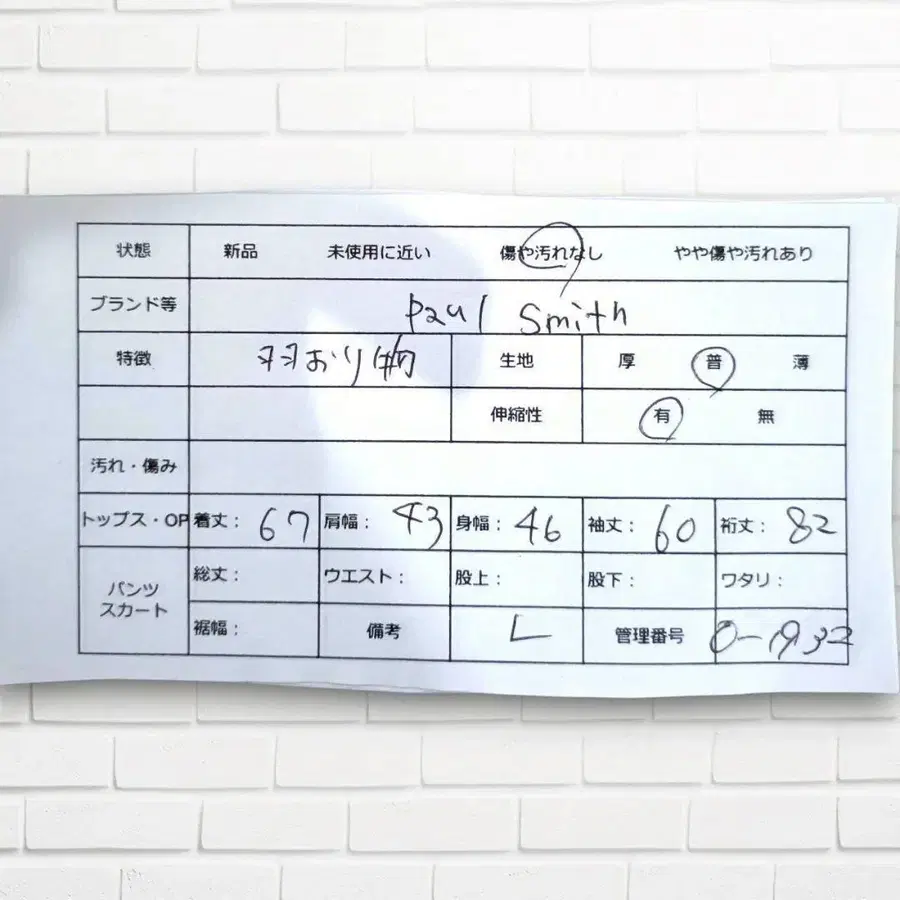 状態 新品 未使用に近い 傷や汚れなし やや傷や汚れあり
ブランド等 Paul Smith
特徴 羽おり物 生地 厚 普 薄
伸縮性 有 無
汚れ・傷み
トップス・OP 着丈: 67 肩幅: 43 身幅: 46 袖丈: 60 裄丈: 82
パンツ
スカート
総丈: ウエスト: 股上: 股下: ワタリ:
裾幅: 備考 L 管理番号 0-1932